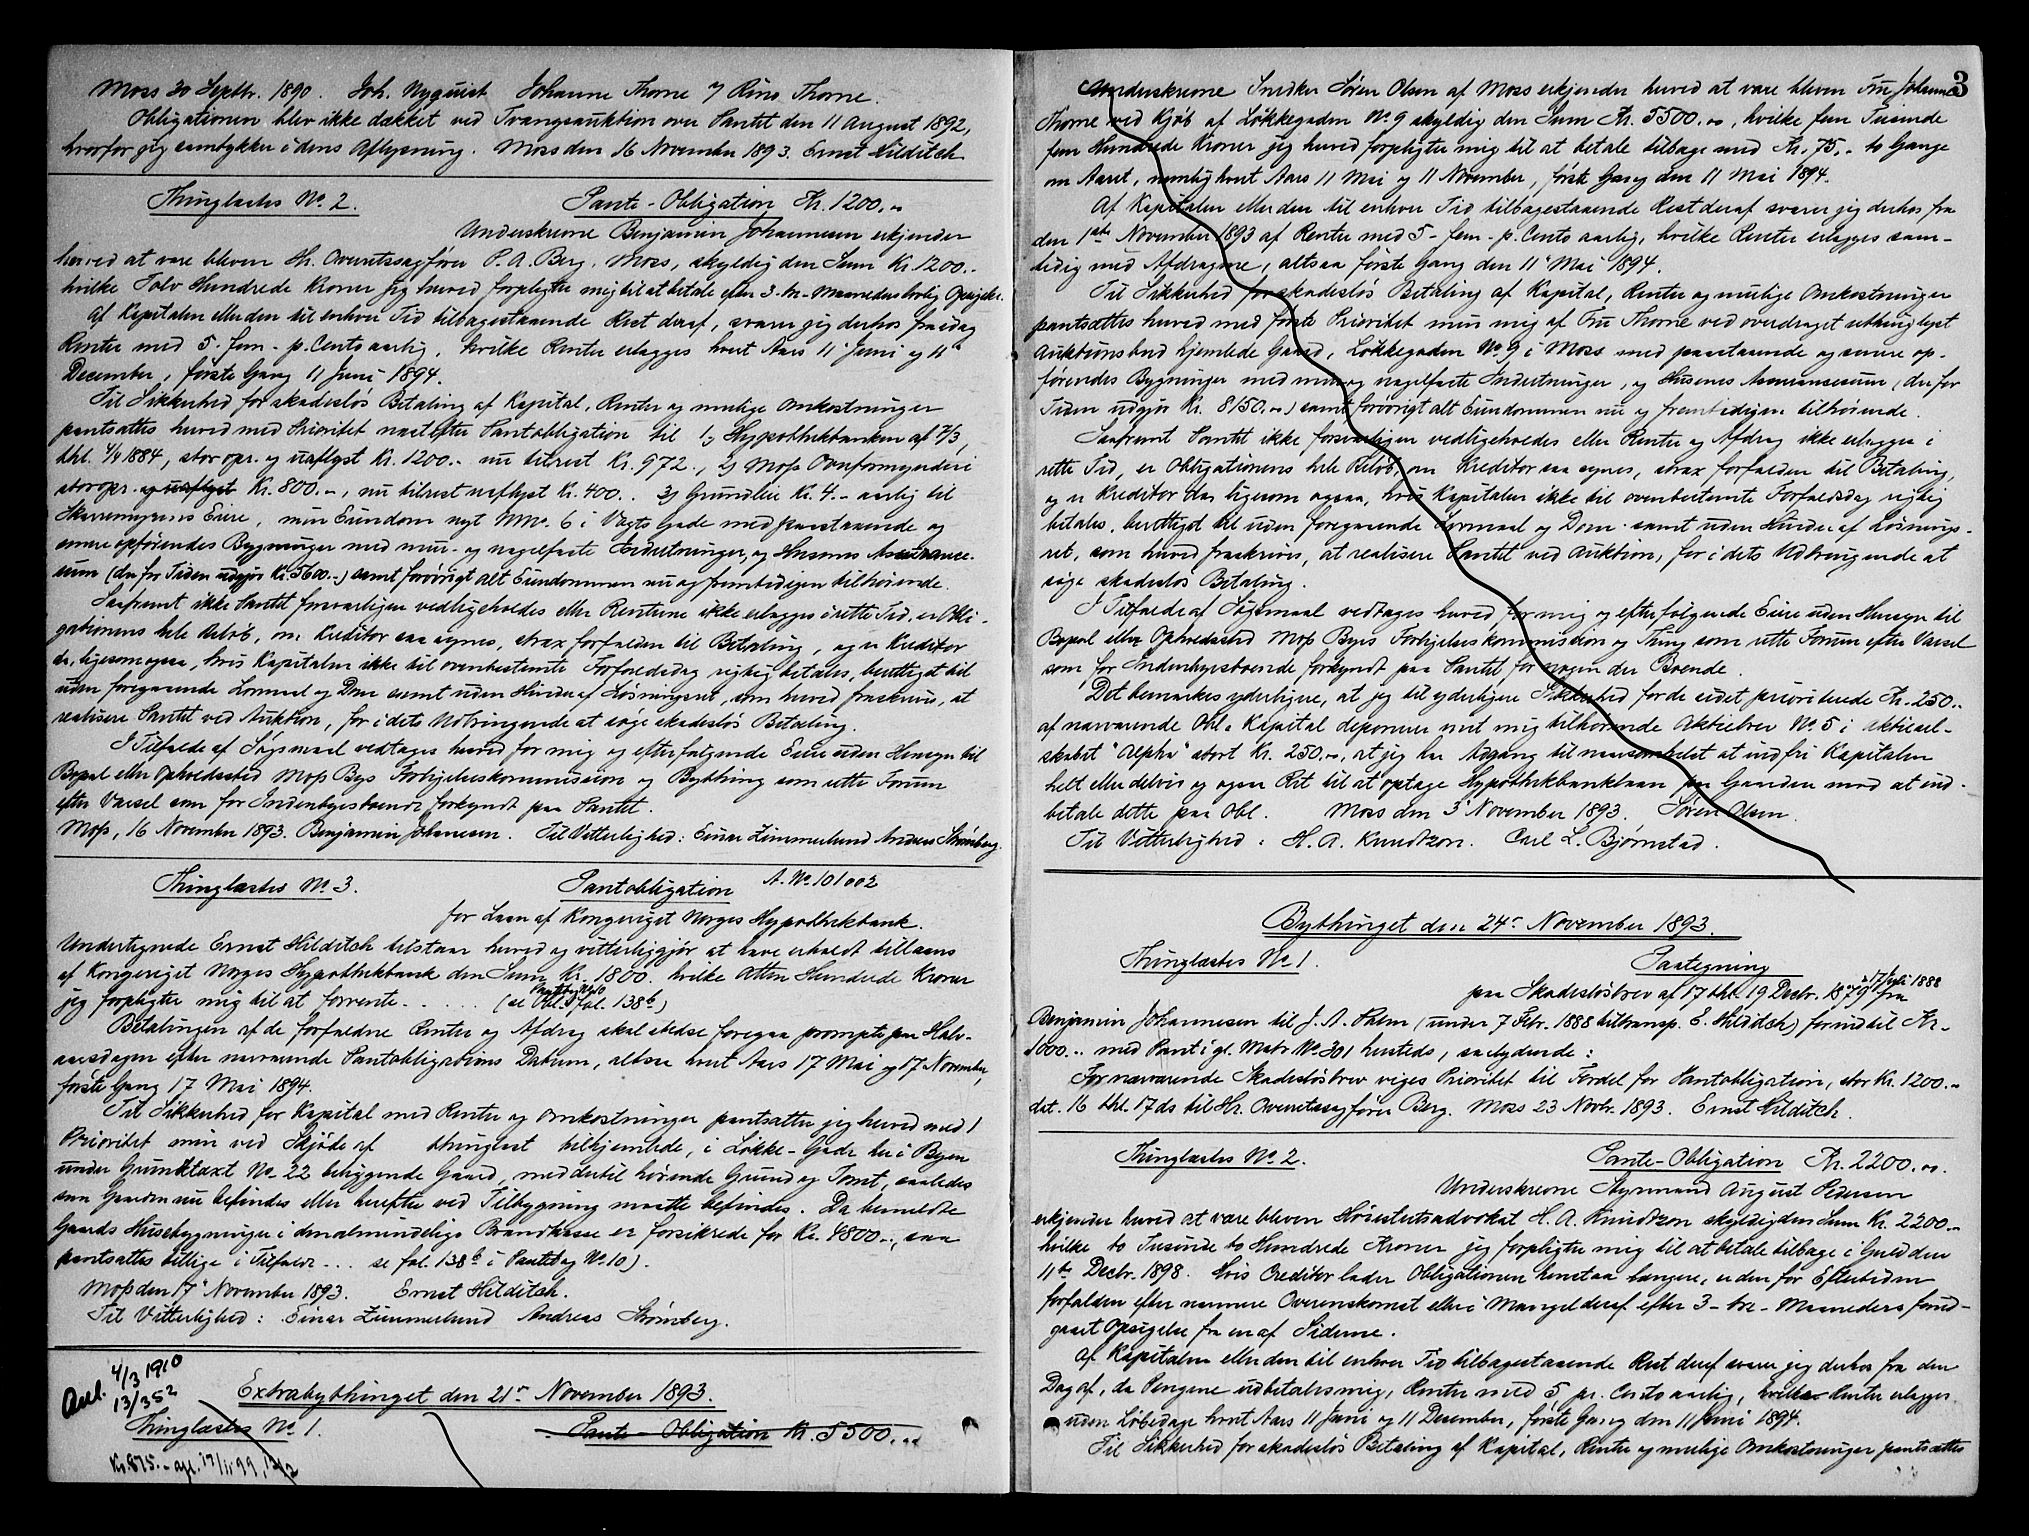 Moss 30 Septbr. 1890. Joh. Nyquist Johanne Thorne og Rino Thorne.
Obligationen blev ikke dækket ved Tvangsauktion over Pantet den 11 August 1892,
hvorfor jeg samtykker i dens Aflysning. Moss den 16 November 1893. Ernst Hilditch
Thinglæstes No. 2. Pante-Obligation Kr. 1200.-
Underskrevne Benjamin Johannesen erkjender
herved at være bleven Hr. Overretssagfører P. A. Berg, Moss, skyldig den Sum Kr. 1200.-
hvilke Tolv Hundrede Kroner jeg herved forpligter mig til at betale efter 3-tre-Maaneders lovlig Opsigelse.
Af Kapitalen eller den til enhver Tid tilbagestaaende Rest deraf, svarer jeg derhos fra idag
Renter med 5-fem-p. Cento aarlig, hvilke Renter erlægges hvert Aars 11 Juni og 11
December, første Gang 11 Juni 1894.
Til Sikkerhed for skadesløs Betaling af Kapital, Renter og mulige Omkostninger
pantsættes herved med Prioritet næst efter Pantobligation til 1) Hypothekbanken af 7/3,
thl. 4/4 1884, stor opr. og uaflyst Kr. 1200.- nu tilrest Kr. 972., 2) Moss Overformynderi
stor opr. og uaflyst Kr. 800.-, nu tilrest uaflyst Kr. 400.. 3) Grundleie Kr. 4.- aarlig til
Skarremyrens Eiere, min Eiendom nyt MNo. 6 i Vogts Gade med paastaaende og
senere opførendes Bygninger med mur- og nagelfaste Indretninger, og Husenes Assurance-
sum (der for Tiden udgjør Kr. 5600.-) samt forøvrigt alt Eiendommen nu og fremtidigen tilhørende.
Saafremt ikke Pantet forsvarligen vedligeholdes eller Renterne ikke erlægges i rette Tid, er Obli-
gationens hele Beløb, om Kreditor saa synes, strax forfalden til Betaling, og er Kreditor
da, ligesom ogsaa, hvis Kapitalen ikke til ovenbestemte Forfaldsdag rigtig betales, berettiget til
uden foregaaende Lovmaal og Dom samt uden Hinder af Løsningsret, som herved fraskrives, at
realisere Pantet ved Auktion, for i dets Udbringende at søge skadesløs Betaling.
I Tilfælde af Søgsmaal vedtages herved for mig og efterfølgende Eiere uden Hensyn til
Bopæl eller Opholdssted Moss Bys Forligelseskommission og Bything som rette Forum
efter Varsel som for Indenbyesboende forkyndt paa Pantet.
Moss, 16 November 1893. Benjamin Johannesen. Til Vitterlighed: Einar Zimmerlund Andreas Strømberg.
Thinglæstes No. 3. Pantobligation A. No. 101002
for Laan af Kongeriget Norges Hypothekbank.
Undertegnede Ernst Hilditch tilstaar herved og vitterliggjør at have erholdt tillaans
af Kongeriget Norges Hypothekbank den Sum Kr. 1800. hvilke Atten Hundrede Kroner
jeg forpligter mig til at forrente . . . . . . (se Pantebog No 10 fol. 138b)
Betalingen af de forfaldne Renter og Afdrag skal stedse foregaa prompte paa Halv-
aarsdagen efter nærværende Pantobligations Datum, altsaa hvert Aars 17 Mai og 17 November,
første Gang 17 Mai 1894.
Til Sikkerhed for Kapital med Renter og Omkostninger pantsætter jeg herved med 1
Prioritet min ved Skjøde af thinglæst tilhjemlede, i Løkke-Gade her i Byen
under Grundtaxt No. 22 beliggende Gaard, med dertil hørende Grund og Tomt, saaledes
som Gaarden nu befindes eller herefter ved Tilbygning maatte befindes. Da bemeldte
Gaards Husebygninger i den almindelige Brandkasse er forsikrede for Kr. 4800.-, saa
pantsættes tillige i Tilfælde . . . se fol. 138b i Pantebog No. 10).
Moss den 17 November 1893. Ernst Hilditch.
Til Vitterlighed: Einar Zimmerlund Andreas Strømberg.
4/3 1910
Aul. 13/352
Extrabythinget den 21de November 1893.
Thinglæstes No. 1. Pante-Obligation Kr. 5500.-
Kr. 875.- apl. 17/11 99,
3
Underskrevne Snedker Søren Olsen af Moss erkjender herved at være bleven Fru Johanne
Thorne ved Kjøb af Løkkegaden No. 9 skyldig den Sum Kr. 5500.-, hvilke fem Tusinde
fem Hundrede Kroner jeg herved forpligter mig til at betale tilbage med Kr. 75.- to Gange
om Aaret, nemlig hvert Aars 11 Mai og 11 November, første Gang den 11 Mai 1894.
Af Kapitalen eller den til enhver Tid tilbagestaaende Rest deraf svarer jeg derhos fra
den 1ste November 1893 af Renter med 5-fem-p. Cento aarlig, hvilke Renter erlægges sam-
tidig med Afdragene, altsaa første Gang den 11 Mai 1894.
Til Sikkerhed for skadesløs Betaling af Kapital, Renter og mulige Omkostninger
pantsættes herved med første Prioritet min mig af Fru Thorne ved overdraget uthinglyst
Auktionsbud hjemlede Gaard, Løkkegaden No. 9 i Moss med paastaaende og senere op-
førendes Bygninger med mur og nagelfaste Indretninger, og Husenes Assurancesum (der for
Tiden udgjør Kr. 8150.-) samt forøvrigt alt Eiendommen nu og fremtidigen tilhørende.
Saafremt Pantet ikke forsvarligen vedligeholdes eller Renter og Afdrag ikke erlægges i
rette Tid, er Obligationens hele Beløb, om Kreditor saa synes, strax forfalden til Betaling,
og er Kreditor da, ligesom ogsaa, hvis Kapitalen ikke til ovenbestemte Forfaldsdag rigtig
betales, berettiget til uden foregaaende Lovmaal og Dom samt uden Hinder af Løsnings-
ret, som herved fraskrives, at realisere Pantet ved Auktion, for i dets Udbringende at
søge skadesløs Betaling.
I Tilfælde af Søgsmaal vedtages herved for mig og efterfølgende Eiere uden Hensyn til
Bopæl eller Opholdssted Moss Byes Forligelseskommission og Thing som rette Forum efter Varsel
som for Indenbyesboende forkyndt paa Pantet for nogen der Boende.
Det bemærkes yderligere, at jeg til yderligere Sikkerhed for de sidst prioriterede Kr. 250.-
af nærværende Obl. Kapital deponerer mit mig tilhørende Aktiebrev No. 5 i Aktiesel-
skabet "Alpha" stort Kr. 250.-, at jeg har Adgang til at indfri Kapitalen
helt eller delvis og ogsaa Ret til at optage Hypothekbanklaan paa Gaarden mod at ind-
betale dette paa Obl. Moss den 3 November 1893. Søren Olsen.
Til Vitterlighed: H. A. Knudtzon. Carl L. Bjørnstad.
Bythinget den 24de November 1893.
Thinglæstes No. 1. Paategning
paa Skadesløsbrev af 17 thl. 19 Decbr. 1879 og 17 Juli 1888 fra
Benjamin Johannesen til J. A. Palm (under 7 Febr. 1888 transp. E. Hilditch) for indtil Kr.
1000.- med Pant i gl. Matr No. 301 hersteds, saalydende:
For nærværende Skadesløsbrev viges Prioritet til Fordel for Pantobligation, stor Kr. 1200.-
dat. 16 thl. 17 ds til Hr. Overretssagfører Berg. Moss 23 Novbr. 1893. Ernst Hilditch.
Thinglæstes No. 2. Pante-Obligation Kr. 2200.-.
Underskrevne Styrmand August Pedersen
erkjender herved at være bleven Høiesteretsadvokat H. A. Knudtzon skyldig den Sum Kr. 2200.-
hvilke to Tusinde to Hundrede Kroner jeg forpligter mig til at betale tilbage i Guld den
11te Decbr. 1898. Hvis Creditor lader Obligationen henstaa længere, er den for Eftertiden
forfalden efter nærmere Overenskomst eller i Mangel deraf efter 3-tre-Maaneders forud-
gaaet Opsigelse fra en af Siderne.
Af Kapitalen eller den til enhver Tid tilbagestaaende Rest deraf svarer jeg derhos fra den
Dag af, da Pengene udbetales mig, Renter med 5 pr. Cento aarlig, hvilke Renter erlægges
uden Løbedage hvert Aars 11 Juni og 11 December, første Gang den 11 Juni 1894.
Til Sikkerhed for skadesløs Betaling af Kapital, Renter og mulige Omkostninger pantsættes